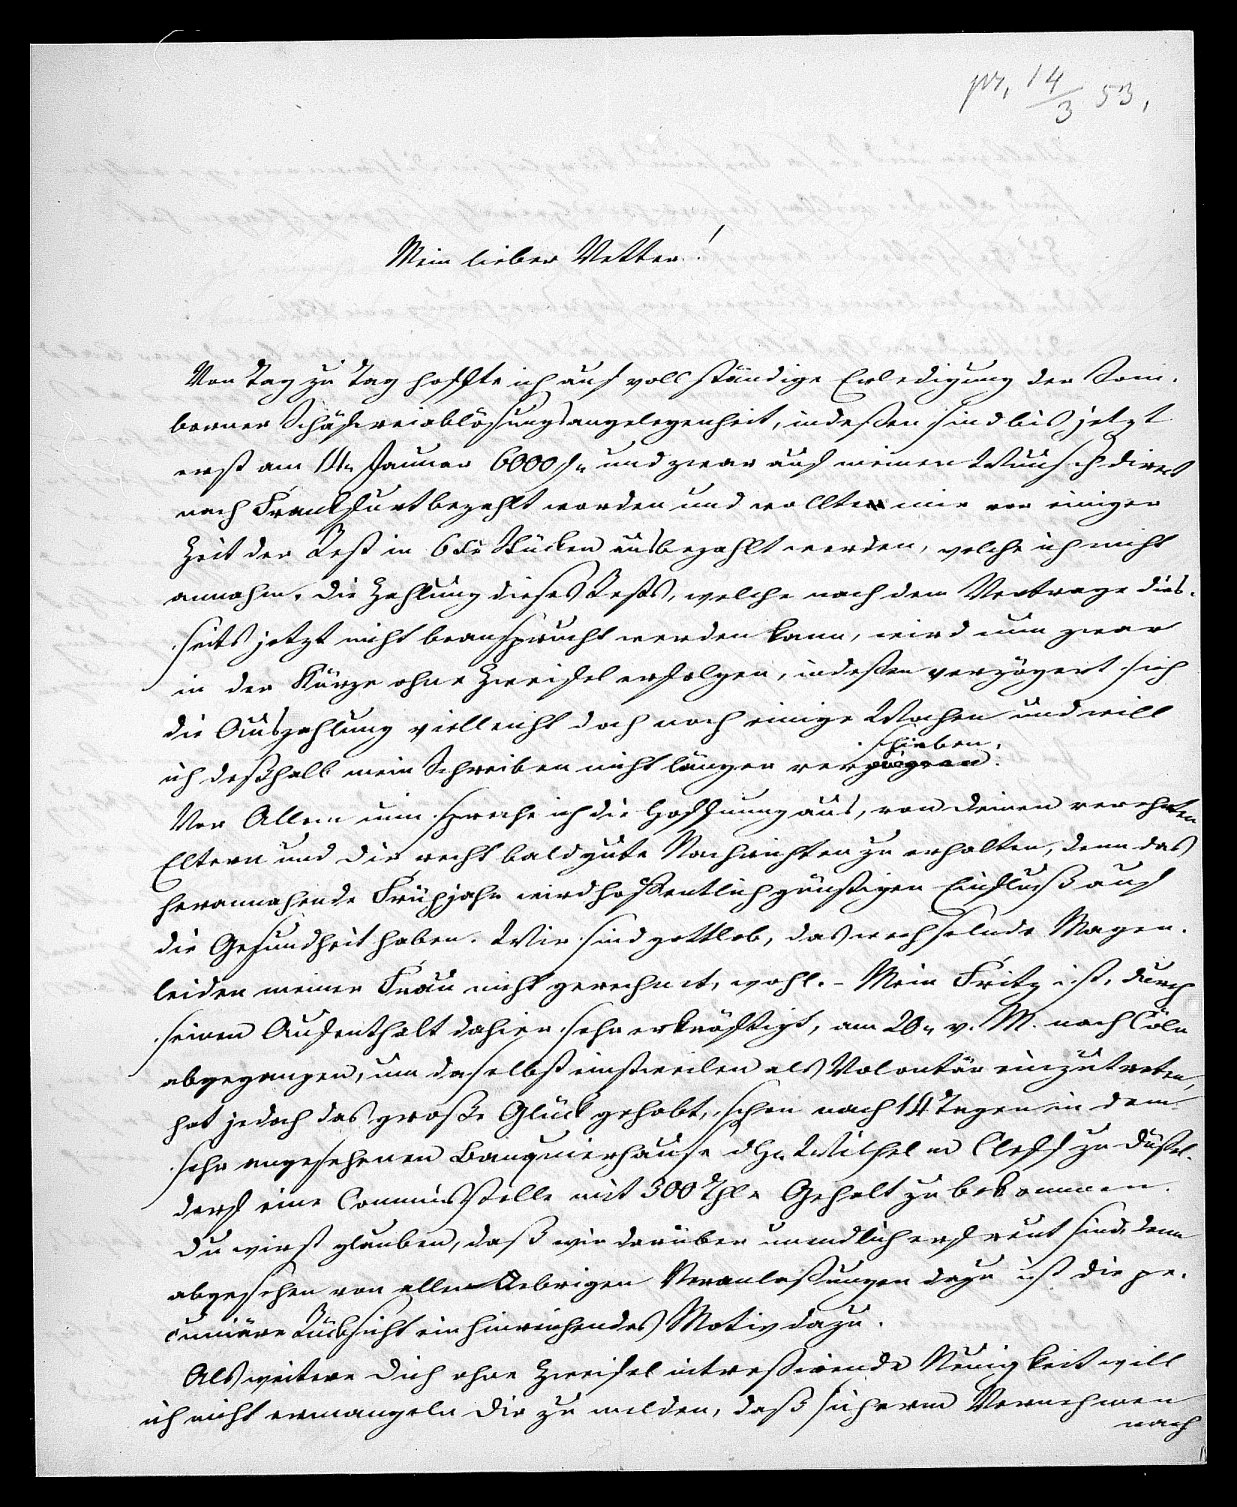 pr. 14/3 53.
Mein lieber Vetter!
Von Tag zu Tag hoffte ich auf vollständige Erledigung der Som-
borner Schäfereiablösungsangelegenheit, indeßen sind bis jetzt
erst am 14n Januar 6000 f. und zwar auf meinen Wunsch direct
nach Frankfurt bezahlt worden und wollten mir vor einiger
Zeit der Rest in 6 Stücken ausbezahlt werden, welche ich nicht
annahm. Die Zahlung dieses Rests, welche nach dem Vertrage dies-
seits jetzt nicht beansprucht werden kann, wird nun zwar
in der Kürze ohne Zweifel erfolgen, indeßen verzögert sich
die Auszahlung vielleicht doch noch einige Wochen und will
ich deßhalb mein Schreiben nicht länger verschieben.
Vor Allem nun spreche ich die Hoffnung aus, von Deinen verehrten
Eltern und Dir recht bald gute Nachrichten zu erhalten, denn das
herannahende Frühjahr wird hoffentlich günstigen Einfluß auf
die Gesundheit haben. Wir sind gottlob, das wechselnde Magen-
leiden meiner Frau nicht gerechnet, wohl. - Mein Fritz ist, durch
seinen Aufenthalt dahier sehr erkräftigt, am 20n v. M. nach Cöln
abgegangen, um daselbst einstweilen als Volontär einzutreten,
hat jedoch das große Glück gehabt, schon nach 14 Tagen in dem
sehr angesehenen Banquierhause d Hn Wilhelm Cleff zu Düßel-
dorf eine Commisstelle mit 300 Thlr Gehalt zu bekommen.
Du wirst glauben, daß wir darüber unendlich erfreut sind, denn
abgesehen von allen Uebrigen Veranlaßungen dazu ist die pe-
cuniäre Rücksicht ein hinreichendes Motiv dazu.
Als weitere Dich ohne Zweifel intreßirende Neuigkeit will
ich nicht ermangeln Dir zu melden, daß sicherem Vernehmen
nach